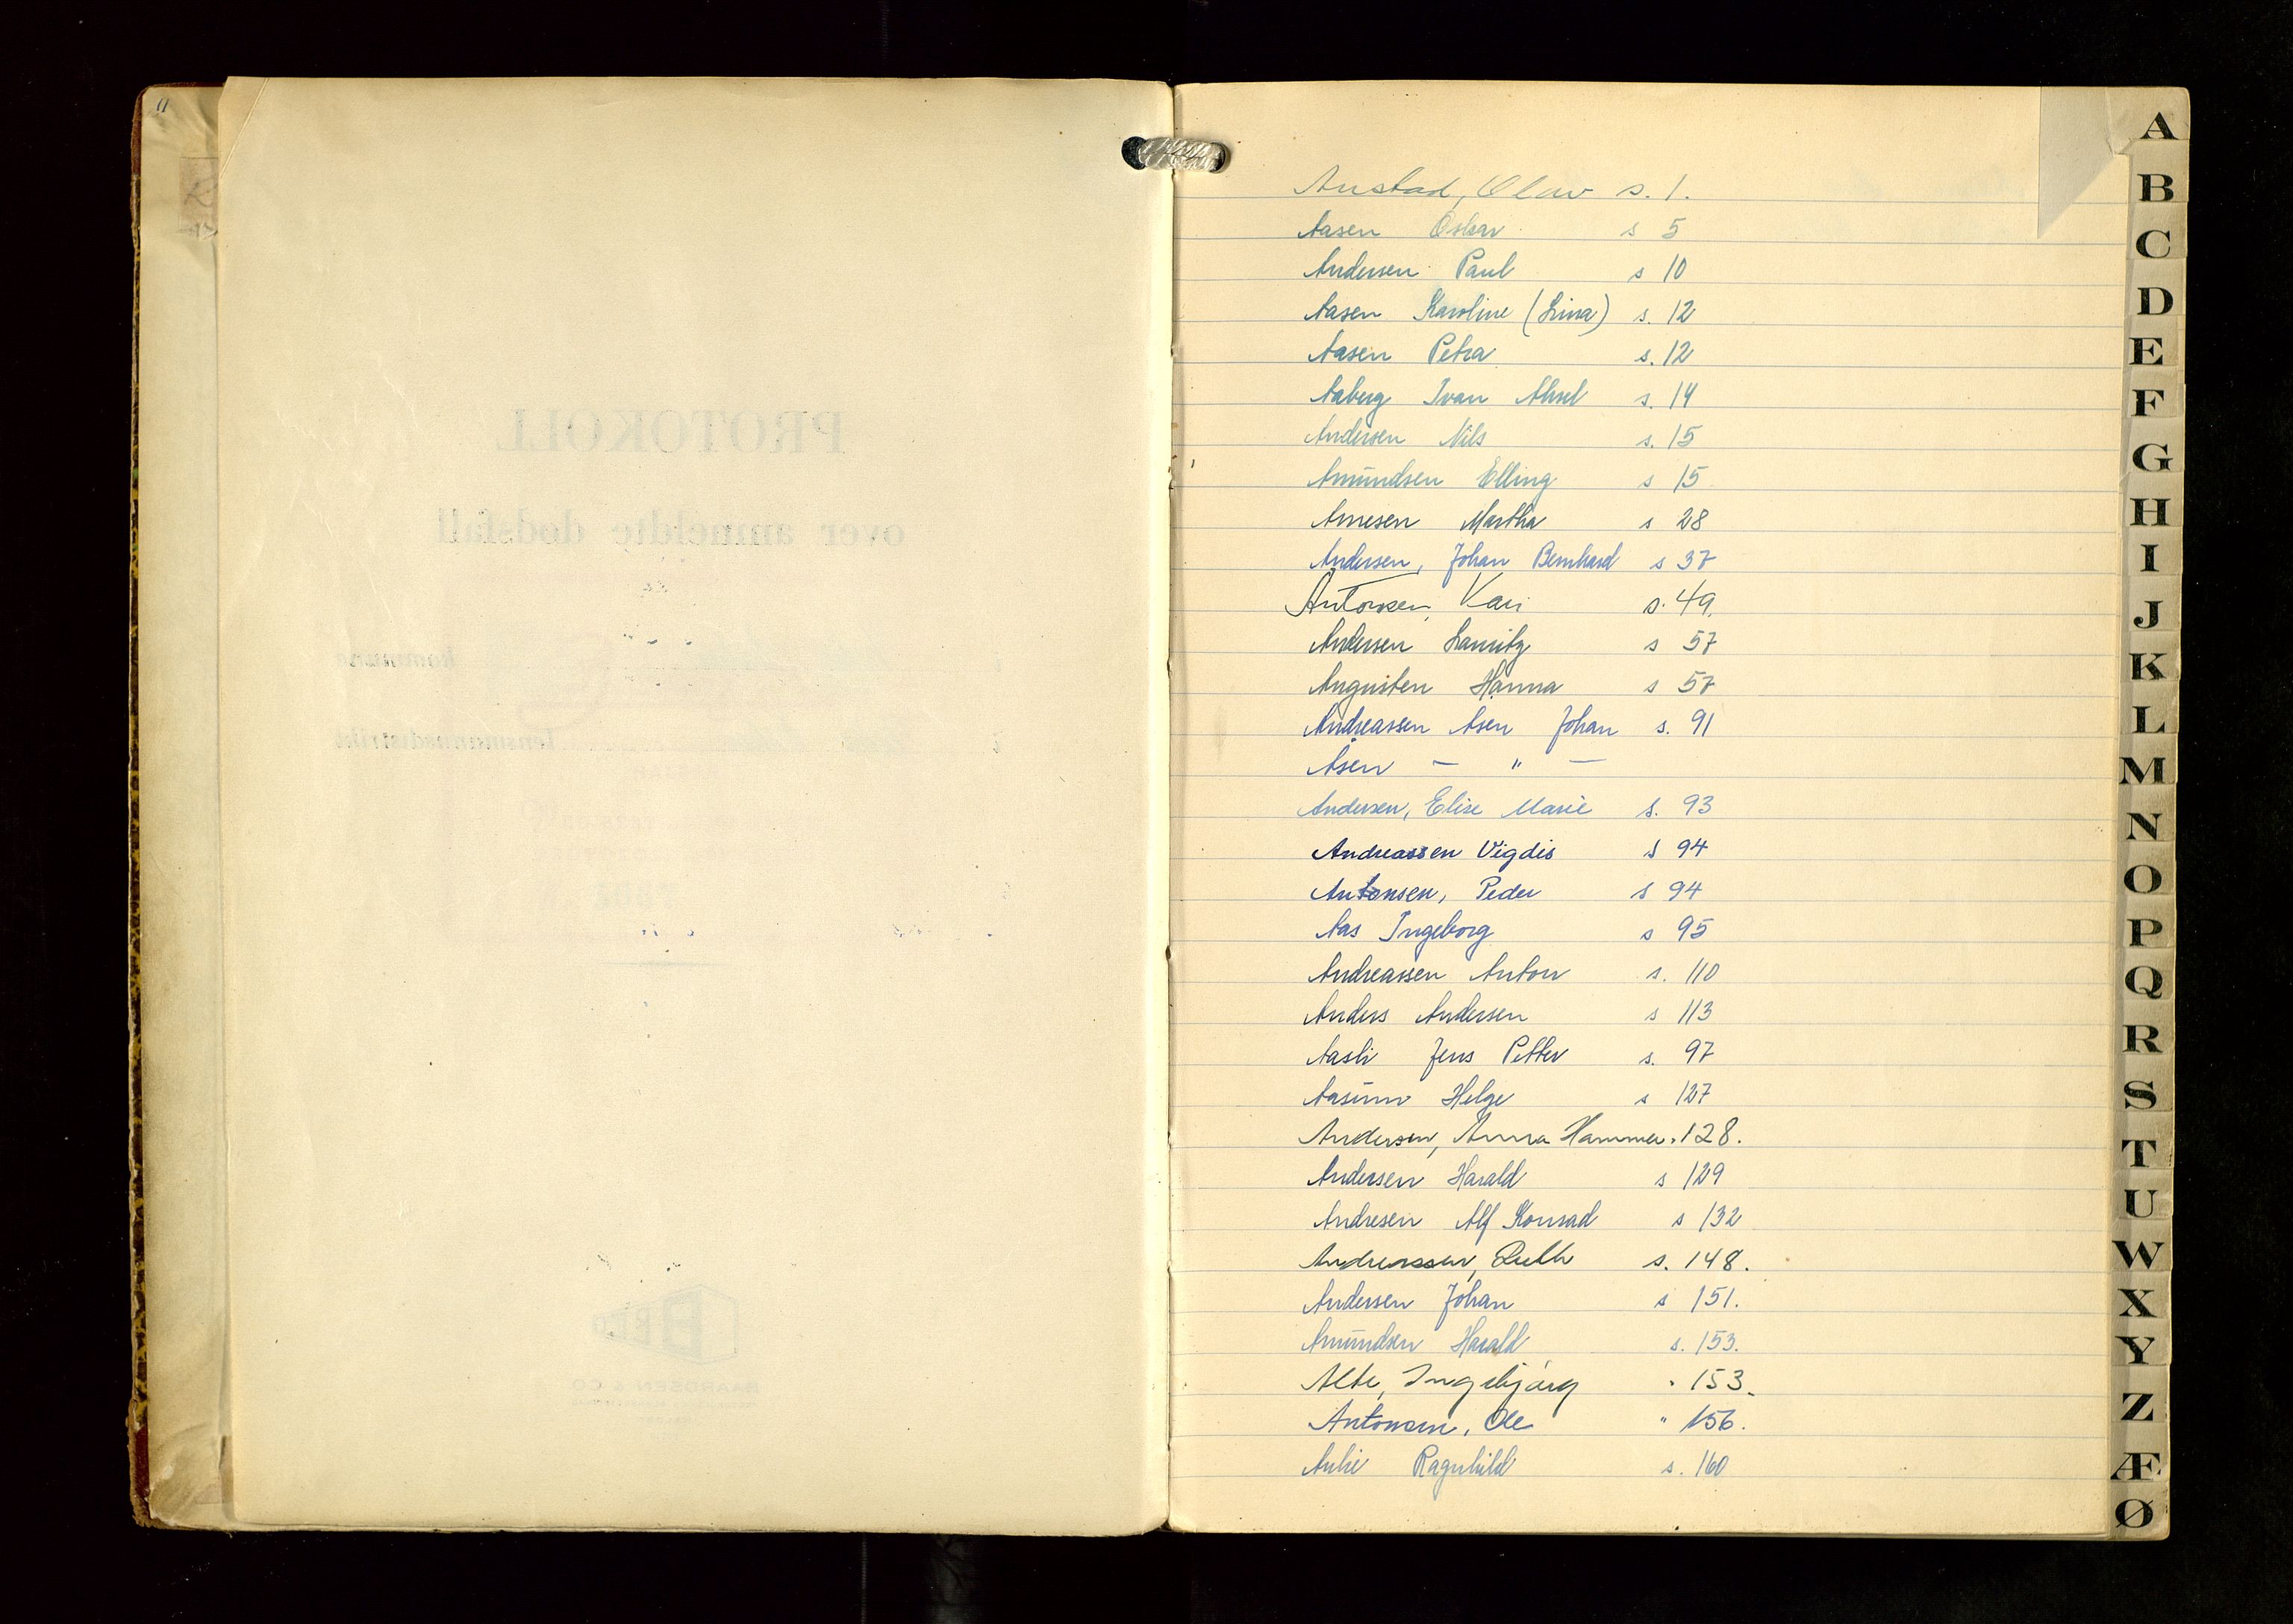 Anstad, Olav s. 1.
Aasen Oskar s 5
Andersen Paul s 10
Aasen Karoline (Lina) s. 12
Aasen Petra s. 12
Aaberg Ivan Aksel s. 14
Andersen Nils s. 15
Amundsen Elling s 15
Arnesen Martha s 28
Andersen, Johan Bernhard s 37
Antonsen, Kari s. 49.
Andersen Lauritz s 57
Hanna s 57
Andreassen Asen Johan s. 91
Åsen — " —
Andersen, Elise Marie s. 93
Andreassen Vigdis s 94
Antonsen, Peder s 94
Aas Ingeborg s 95
Andreassen Anton s. 110
Anders Andersen s 113
Aasli Jens Petter s. 97
Helge s 127
Andersen, Anna Hammer. 128.
Andersen Harald s 129
Andresen Alf Konrad s 132
Andreassen, Ruth s. 148.
Andersen Johan s 151.
Amundsen Harald s. 153.
Ingebjørg " 153.
Antonsen, Ole " 156.
Ragnhild s. 160
PROTOKOLL
over anmeldte dødsfall
i kommune
i lensmannsdistrikt
A
B
C
D
E
F
G
H
I
J
K
L
M
N
O
P
Q
R
S
T
U
W
X
Y
Z
Æ
Ø